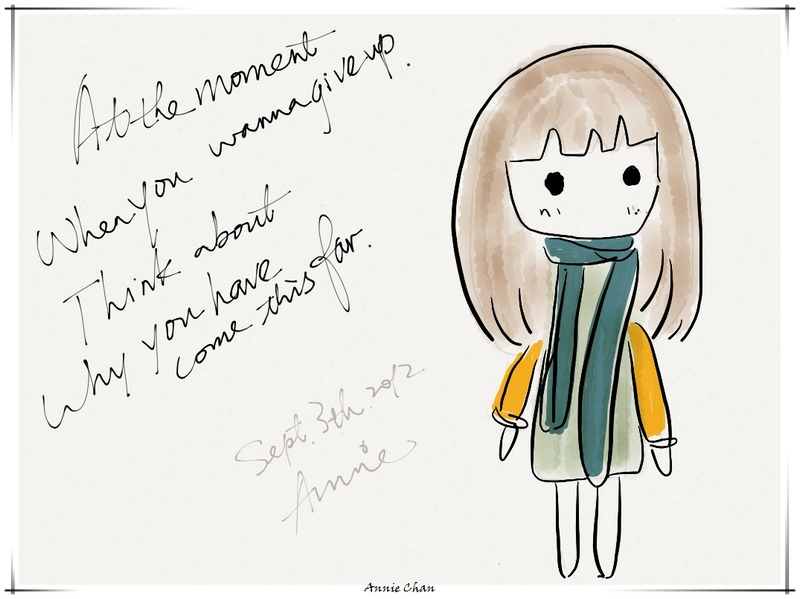 At the moment
When you wanna give up.
Think about
Why you have
come this far.
Sept. 3th. 2012
Annie
Annie Chan